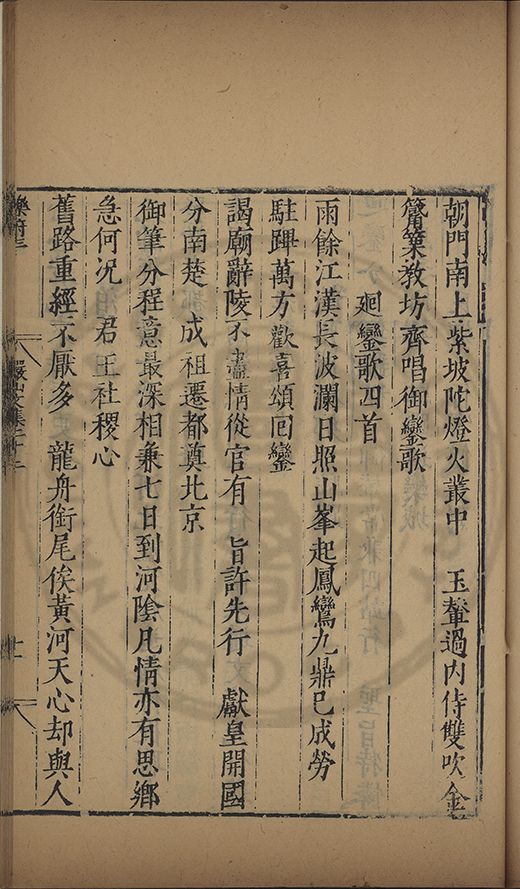 朝門南上紫坡陀燈火叢中　玉輦過内侍雙吹金
篳篥教坊齊唱御鑾歌
廻鑾歌四首
雨餘江漢長波瀾日照山峯起鳳鸞九鼎已成勞
駐蹕萬方歡喜頌回鑾
謁廟辭陵不盡情從官有　旨許先行　獻皇開國
分南楚　成祖遷都奠北京
御筆分程意最深相兼七日到河陰凡情亦有思鄉
急何況　君王社稷心
舊路重經不厭多　龍舟銜尾俟黃河天心却與人
樂府三
儼山文集二十二
十一